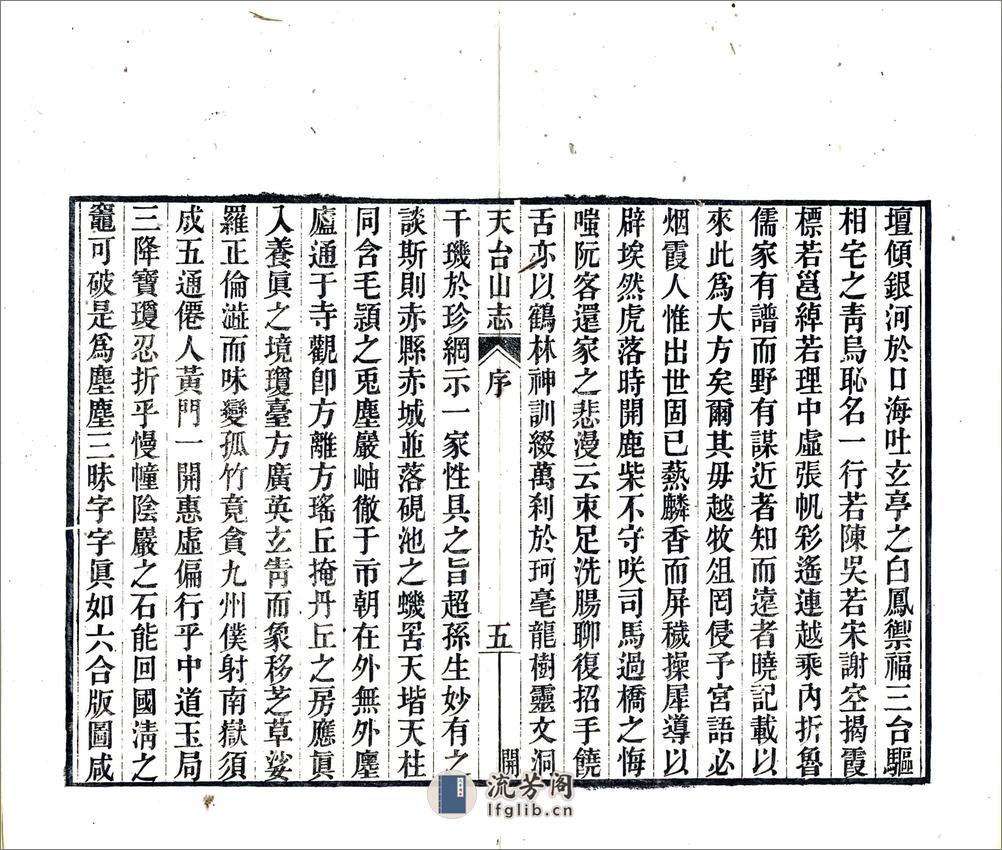 壇傾銀河於口海吐玄亭之白鳳禦福三台驅
相宅之靑烏恥名一行若陳吳若宋謝空揭霞
標若邕綽若理中虛張帆彩遙連越乘內折魯
儒家有譜而野有謀近者知而遠者曉記載以
來此爲大方矣爾其毋越牧俎罔侵予宮語必
烟霞人惟出世固已爇麟香而屏穢操犀導以
辟埃然虎落時開鹿柴不守咲司馬過橋之悔
嗤阮客還家之悲漫云束足洗腸聊復招手饒
舌亦以鶴林神訓綴萬刹於珂毫龍樹靈文洞
天台山志 序 五 開
干璣於珍網示一家性具之旨超孫生妙有之
談斯則赤縣赤城並落硯池之蟣罟天堦天柱
同含毛潁之兎塵巖岫徹于帀朝在外無外廛
廬通于寺觀卽方離方瑤丘掩丹丘之房應眞
入養眞之境瓊臺方廣英玄靑而象移芝草娑
羅正倫澁而味變孤竹竟貪九州僕射南嶽須
成五通僊人黃門一開惠虛偏行乎中道玉局
三降寶瓊忍折乎慢幢陰巖之石能回國淸之
竈可破是爲塵塵三昧字字眞如六合版圖咸
流芳阁
lfglib.cn